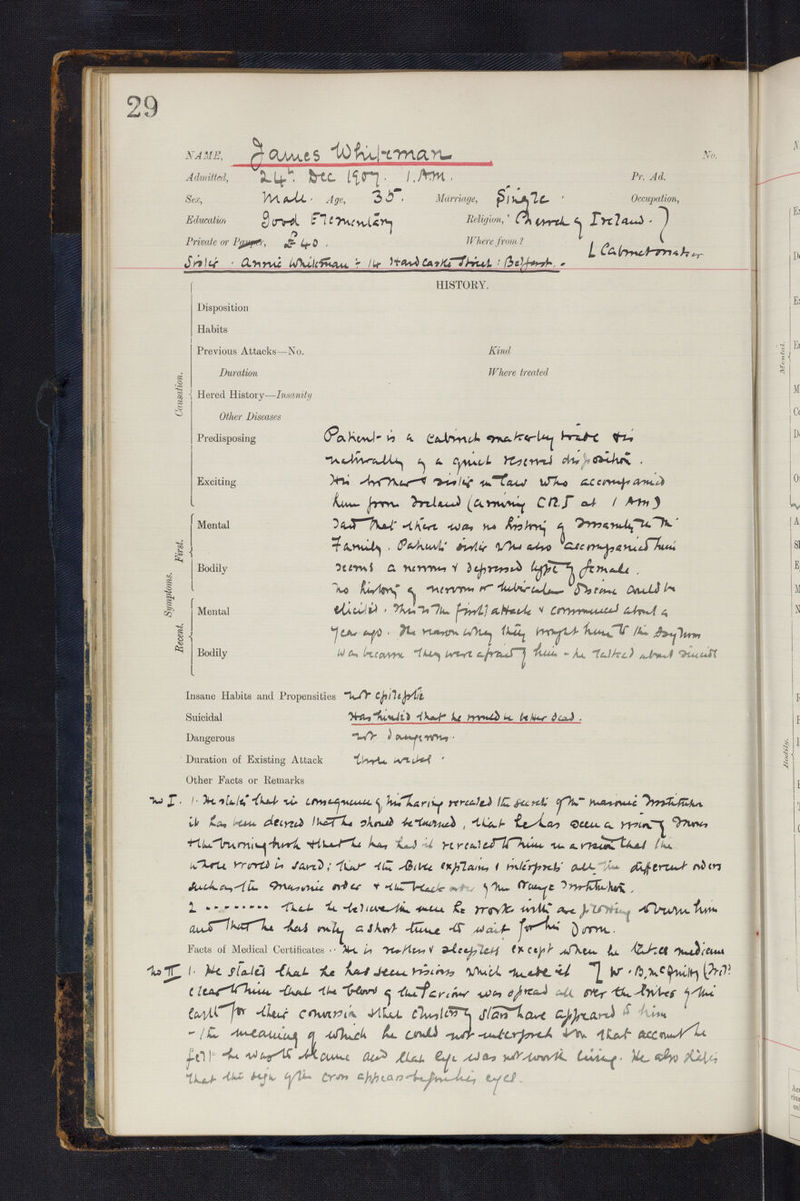 29
NAME, James Whiteman No.
Admitted, 24th Dec 1907. 1. AM. Pr. Ad.
Sex, Male. Age, 35. Marriage, Single. Occupation,
Education Good Elementary Religion, Church of Ireland.
Private or Pauper, £40. Where from? Cabinetmaker
Sister. Annie Whiteman : 14 Street : Belfast.
HISTORY.
Causation.
Disposition
Habits
Previous Attacks—No. Kind
Duration Where treated
Hered History—Insanity
Other Diseases
Predisposing Patient is a cabinet maker by trade &
naturally of a quiet reserved disposition.
Exciting His brother & sister in law who accompanied
him from Ireland (arriving CRI at 1 AM)
Symptoms. First. Recent.
Mental Said that there was no history of Insanity in the
Family. Patient's sister who also accompanied him
Bodily seems a nervous & depressed type of female.
No history of nervous or tubercular Disease could be
Mental elicited. This is the first attack & commenced about a
year ago. The reason why they brought him to the Asylum
Bodily was because they were afraid of him - he talked about
Insane Habits and Propensities not epileptic
Suicidal Has hinted that he would be better dead.
Dangerous not dangerous.
Duration of Existing Attack weeks.
Other Facts or Remarks
No I. 1. He states that in consequence of his having revealed the secrets of the masonic Institution
it has been decreed that he should be burned, that he has seen a vision of
the burning bush & that he has had it revealed to him in a vision that the
whole world is saved; that the Bible explains & interprets all the different orders
such as the Masonic order & the black order of the Orange Institution.
2 that he believes the men he works with are plotting to burn him
and that he has only a short time to wait for his Doom.
Facts of Medical Certificates He is restless & sleepless except when he takes medicine
No II 1. He states that he has seen visions which made it
clear to him that the blood of the Saviour was spread all over the tribes of the
earth for their conversion & that clusters of stars have appeared to him
- the meaning of which he could not interpret & on that account he
felt he was to blame and that life was not worth living. He also states
that the sign of the cross appears before his eyes.